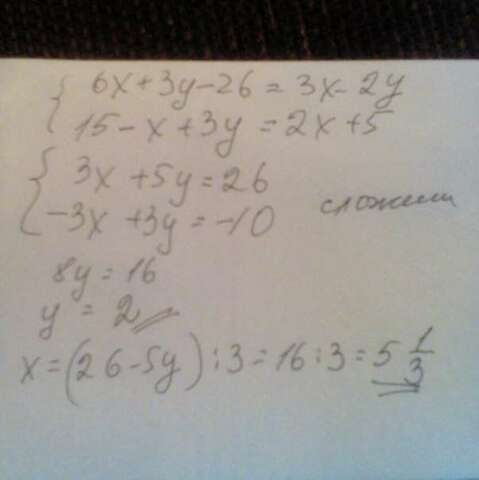 { 6x+3y-26=3x-2y
15-x+3y=2x+5
{ 3x+5y=26
-3x+3y=-10 сложили
8y=16
y=2
x=(26-5y):3=16:3=5 1/3